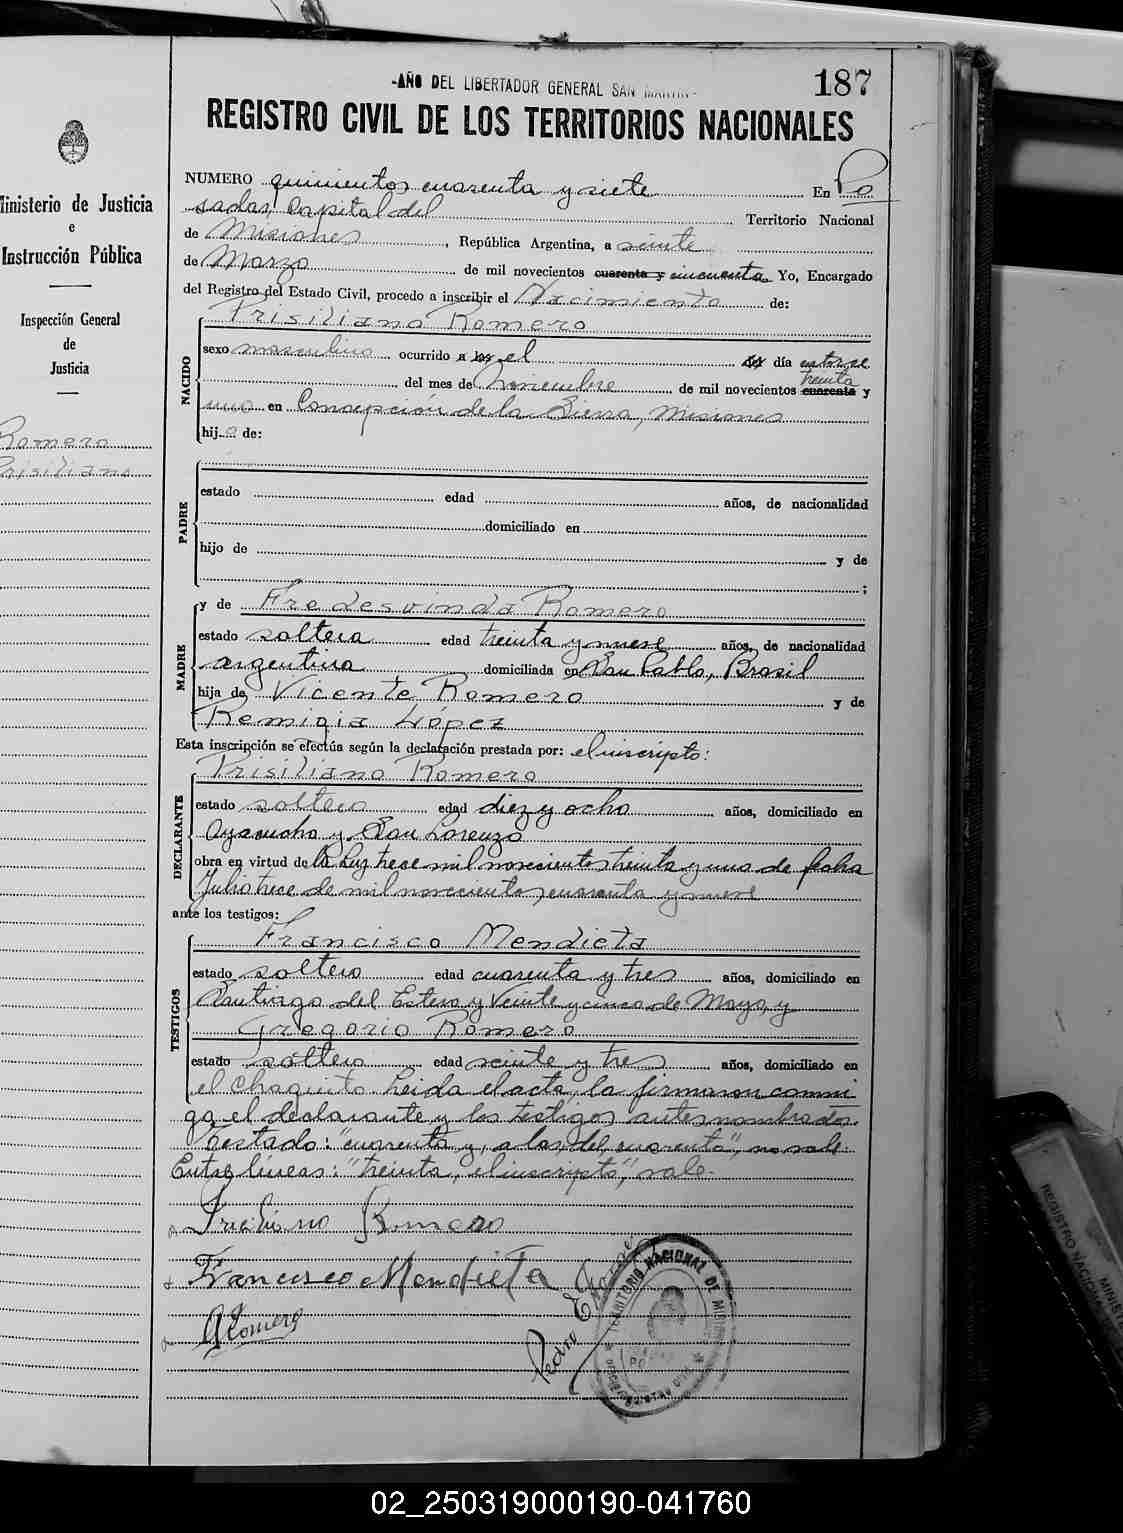 -AÑO DEL LIBERTADOR GENERAL SAN MARTIN-
187
REGISTRO CIVIL DE LOS TERRITORIOS NACIONALES
Ministerio de Justicia
e
Instrucción Pública
Inspección General
de
Justicia
Romero
Prisiliano
NUMERO quinientos cuarenta y siete En Po
sadas, Capital del Territorio Nacional
de Misiones, República Argentina, a veinte
de Marzo de mil novecientos cuarenta y cincuenta Yo, Encargado
del Registro del Estado Civil, procedo a inscribir el Nacimiento de:
Prisiliano Romero
NACIDO
sexo masculino ocurrido a las el día catorce
del mes de Noviembre de mil novecientos cuarenta treinta y
uno en Concepción de la Sierra, Misiones
hijo de:
PADRE
estado edad años, de nacionalidad
domiciliado en
hijo de y de
;
MADRE
y de Fredesvinda Romero
estado soltera edad treinta y nueve años, de nacionalidad
argentina domiciliada en San Pablo, Brasil
hija de Vicente Romero y de
Remigia López
Esta inscripción se efectúa según la declaración prestada por: el inscripto:
DECLARANTE
Prisiliano Romero
estado soltero edad diez y ocho años, domiciliado en
Ayacucho y San Lorenzo
obra en virtud de la Ley trece mil novecientos treinta y uno de fecha
Julio trece de mil novecientos cuarenta y nueve
ante los testigos:
TESTIGOS
Francisco Mendieta
estado soltero edad cuarenta y tres años, domiciliado en
Santiago del Estero y Veinte y cinco de Mayo, y
Gregorio Romero
estado soltero edad veinte y tres años, domiciliado en
el Chaquito. Leida el acta, la firmaron conmi
go el declarante y los testigos antes nombrados.
Testado: "cuarenta y, a las, del, cuarenta", no vale.
Entre líneas: "treinta, el inscripto", vale.
Romero
Francisco Mendieta
GRomero
Pedro E
TERRITORIO NACIONAL DE MISIONES
REGISTRO NACIONAL
02_250319000190-041760